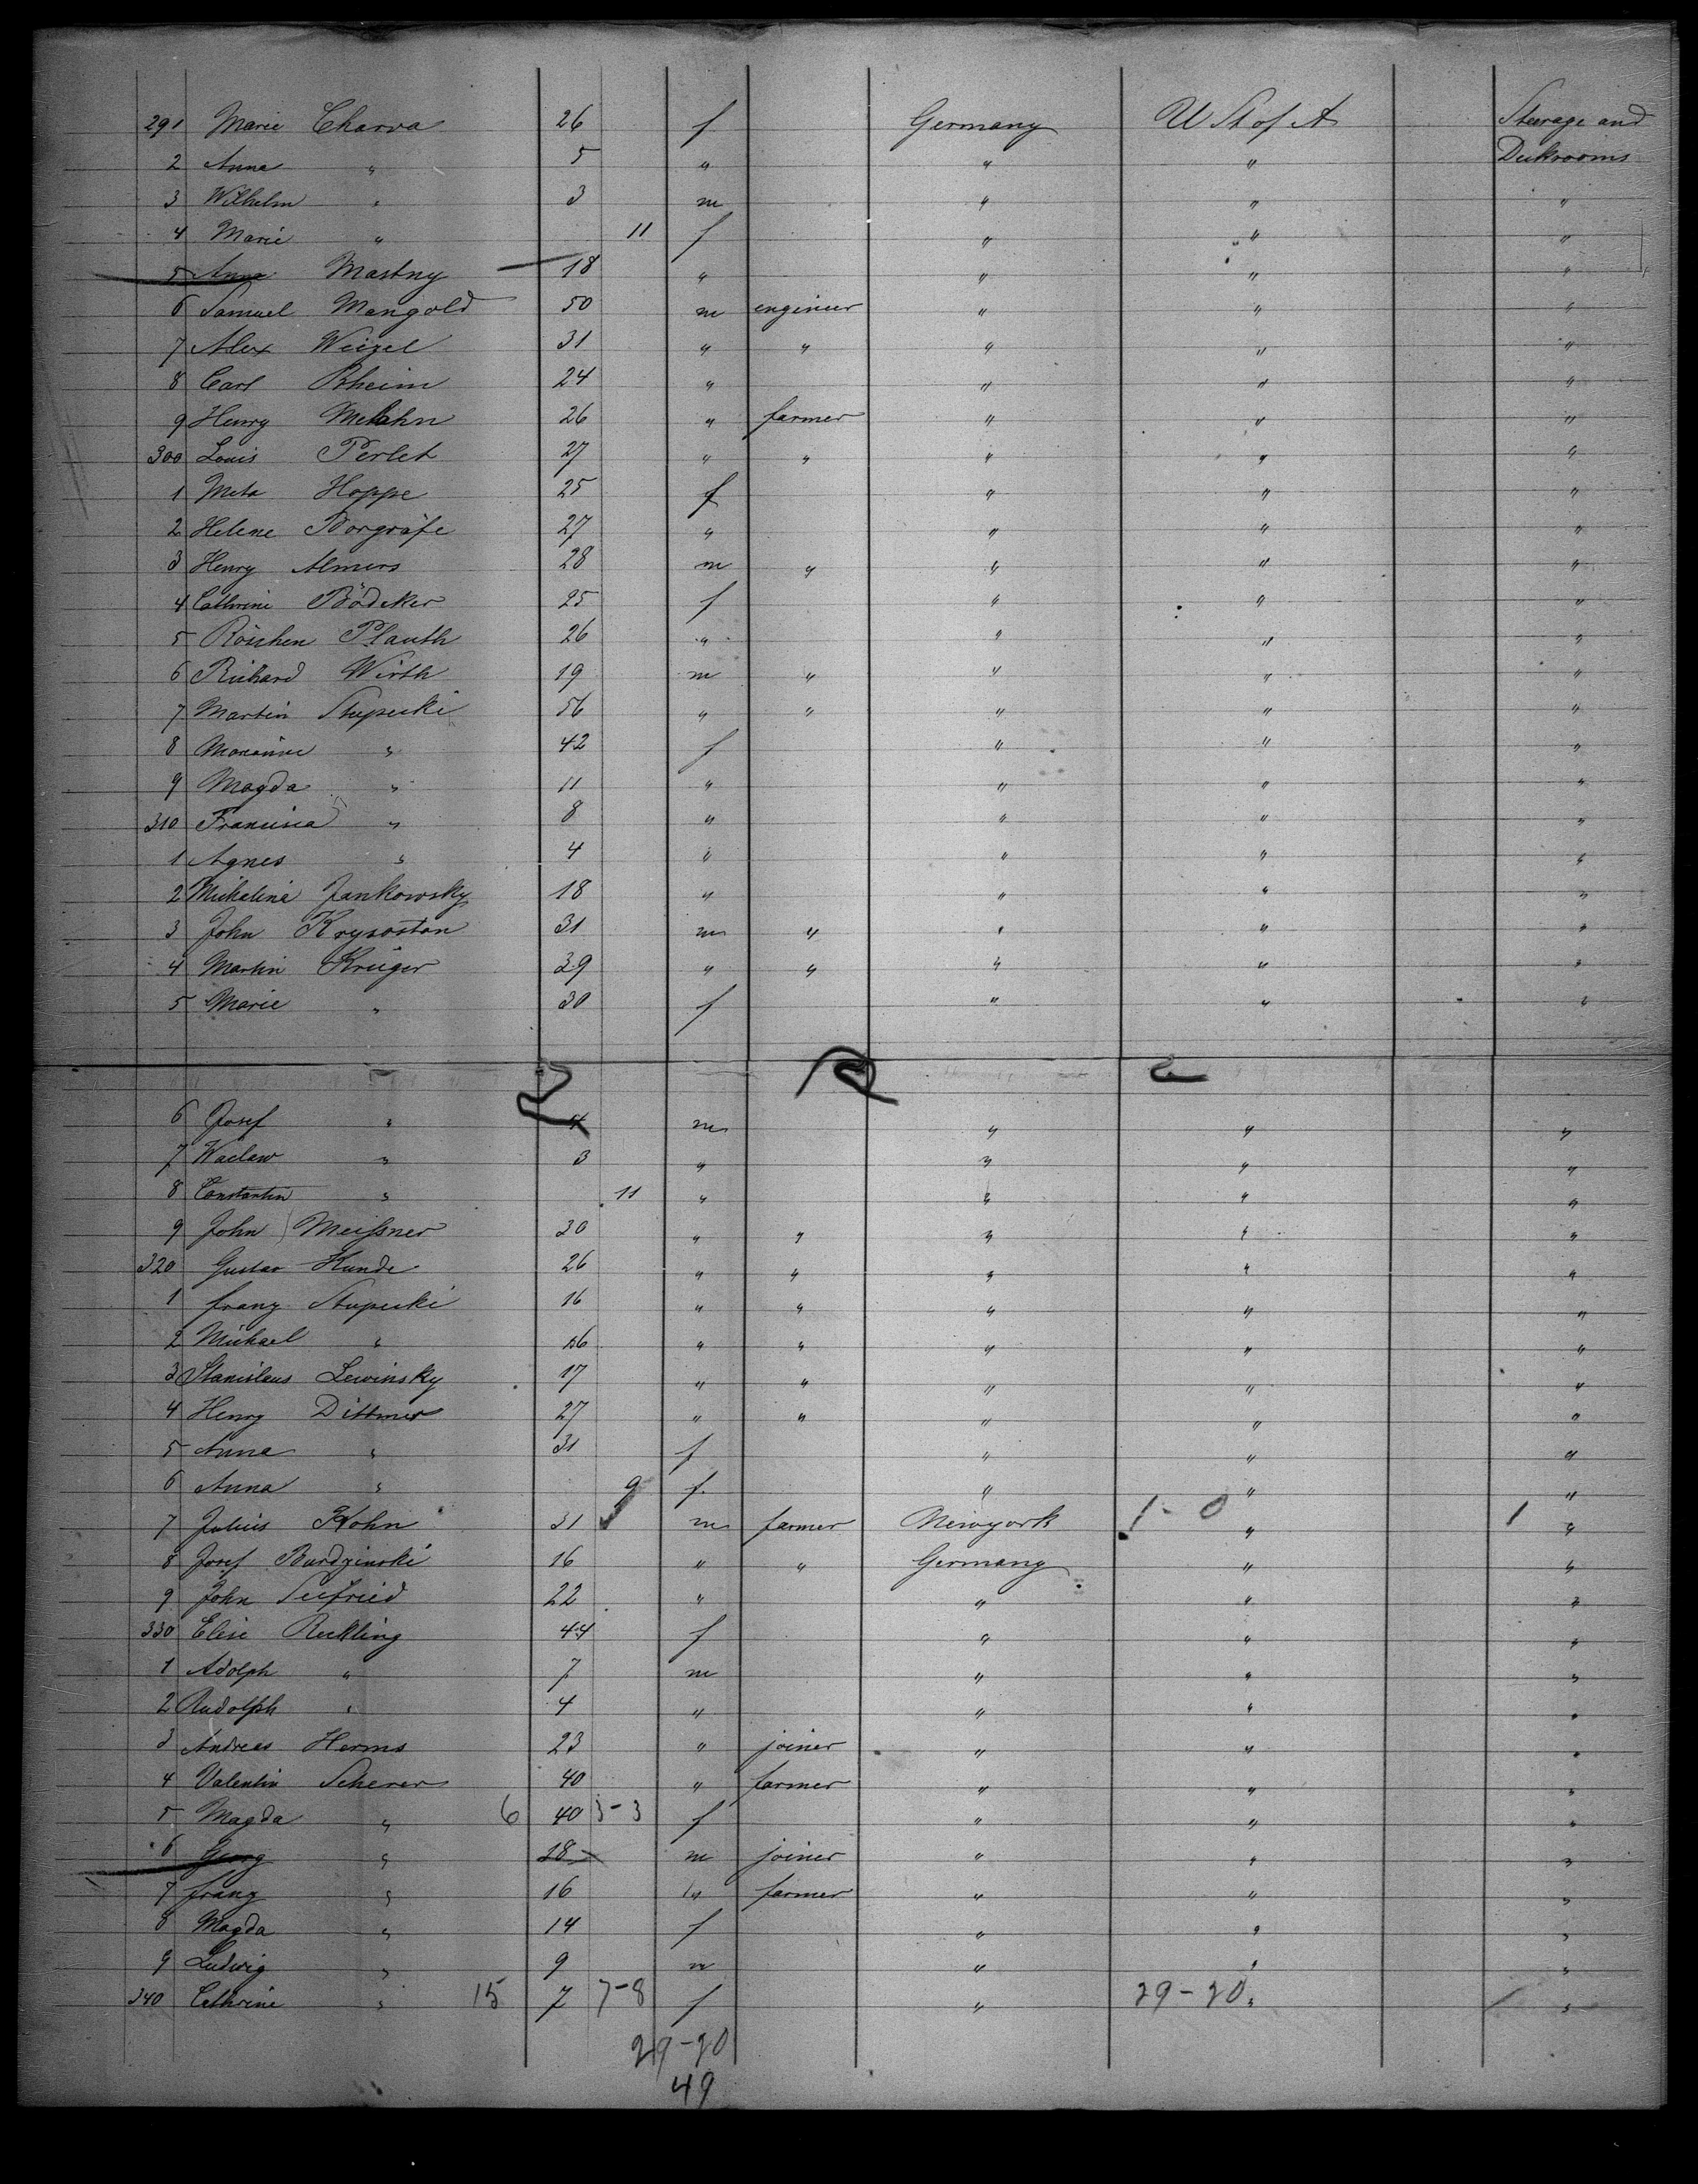 291 Marie Charva 26 f Germany U St of A Steerage and
2 Anna " 5 " " " Deckrooms
3 Wilhelm " 3 m " " "
4 Marie " 11 f " " "
5 Anna Mastny 18 " " " "
6 Samuel Mangold 50 m engineer " " "
7 Alex Weizel 31 " " " " "
8 Carl Rheim 24 " " " "
9 Henry 26 " farmer " " "
300 Louis Perlet 27 " " " " "
1 Meta Hoppe 25 f " " "
2 Helene Borgräfe 27 " " " "
3 Henry Almers 28 m " " " "
4 Cathrine Bödeker 25 f " " "
5 Röschen Plauth 26 " " " "
6 Richard Wirth 19 m " " " "
7 Martin Stupecki 56 " " " " "
8 Marianne " 42 f " " "
9 Magda " 11 " " " "
310 Francisca " 8 " " " "
1 Agnes " 4 " " " "
2 Michaline Jankowsky 18 " " " "
3 John Krysostan 31 m " " " "
4 Martin Krüger 39 " " " " "
5 Marie " 30 f " " "
6 Josef " 4 m " " "
7 Waclaw " 3 " " " "
8 Constantin " 11 " " " "
9 John Meißner 30 " " " " "
320 Gustav Kunde 26 " " " " "
1 Franz Stupecki 16 " " " " "
2 Michael " 16 " " " " "
3 Stanislaus Lewinsky 17 " " " " "
4 Henry Dittmer 27 " " " " "
5 Anna " 31 f " " "
6 Anna " 9 f " " "
7 Julius Kohn 31 m farmer Newyork 1-0 " 1 "
8 Josef Burdzinski 16 " " Germany " "
9 John Seefried 22 " " " "
330 Elise Reckling 44 f " " "
1 Adolph " 7 m " " "
2 Rudolph " 4 " " " "
3 Andreas Herms 23 " joiner " " "
4 Valentin Scherer 40 " farmer " " "
5 Magda " 6 40 3-3 f " " "
6 Georg " 28 m joiner " " "
7 Franz " 16 " farmer " " "
8 Magda " 14 f " " "
9 Ludwig " 9 m " " "
340 Cathrine " 15 7 7-8 f " 29-20 " "
29-20
49